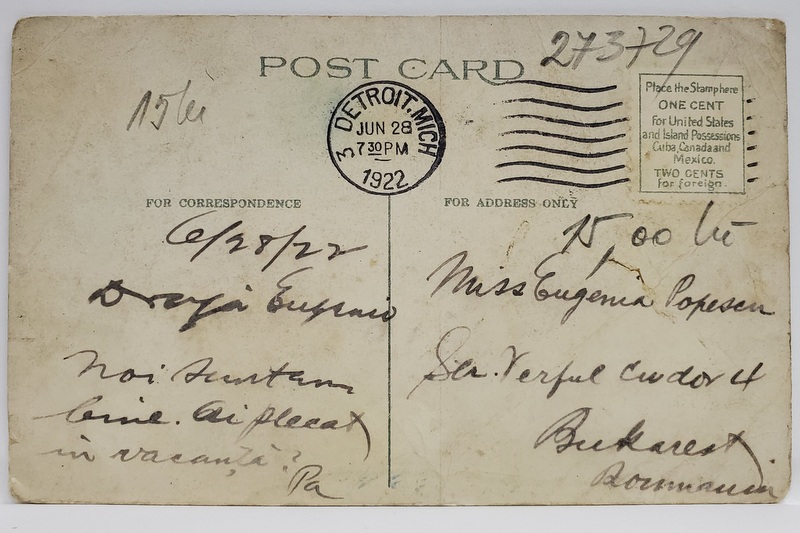 273729
POST CARD
15 lei
3 DETROIT, MICH.
JUN 28
7 30 PM
1922
Place the Stamp here
ONE CENT
For United States
and Island Possessions
Cuba, Canada and
Mexico.
TWO CENTS
For foreign.
FOR CORRESPONDENCE
6/28/22
Dragă Eugenio
Noi suntem
bine. Ai plecat
in vacanță?
Pa
FOR ADDRESS ONLY
15,00 lei
Miss Eugenia Popescu
Str. Verful cu dor 4
Bukarest
Roumania